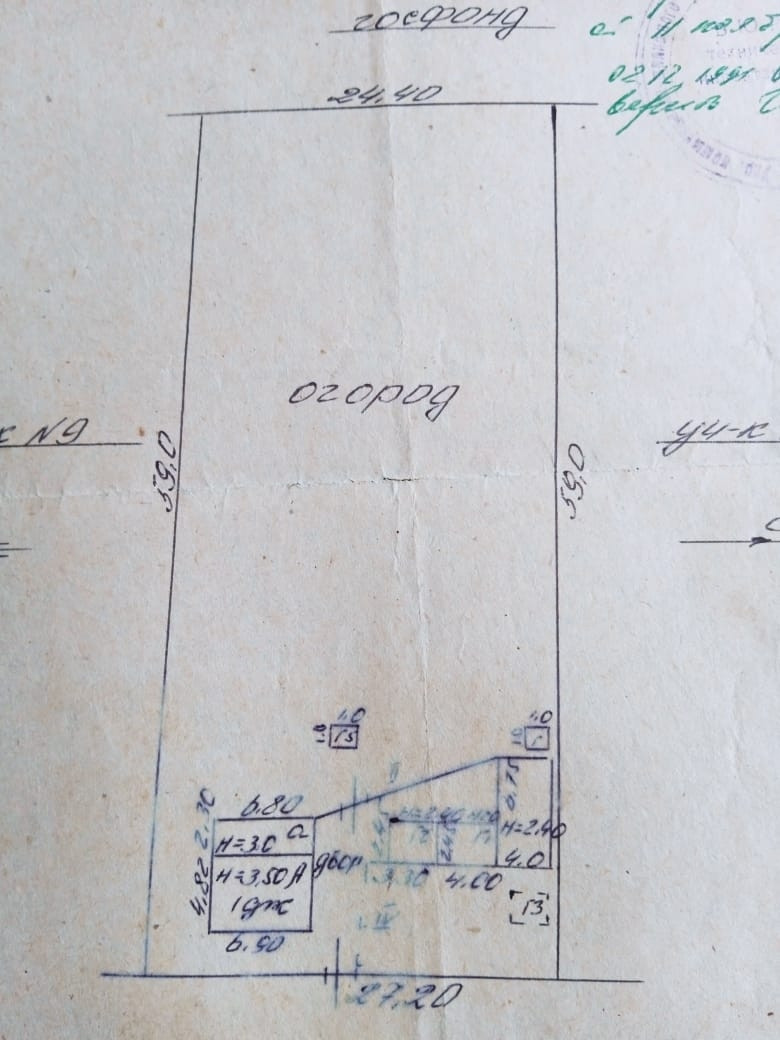 госфонд
24.40
02 12 1991
59,0
огород
59,0
к N9
уч-к
1.0
1.0
Г5
1.0
1.0
Г
6.80
2.30
а
H=3.0
4.82
H=3,50 А
1 эт ж
6.50
двор
H=2.40
Г2
2.45
6.75
H=2.40
4.0
3.30
4.00
Г3
IV
27,20